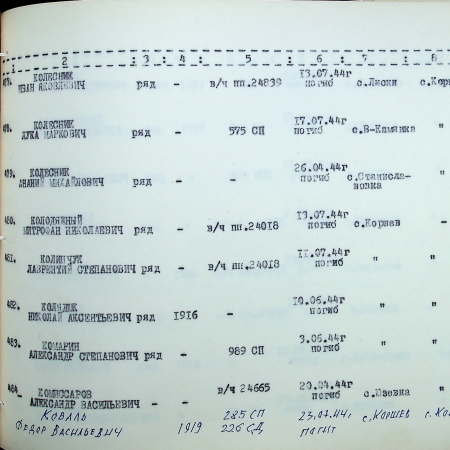 1 : 2 : 3 : 4 : 5 : 6 : 7 : 8
КОЛЕСНИК 13.07.44г
ИВАН ЯКОВЛЕВИЧ ряд - в/ч пп.24839 погиб с.Лиски
КОЛЕСНИК 17.07.44г
ЛУКА МАРКОВИЧ ряд - 575 СП погиб с.В-Камянка "
КОЛЕСНИК 26.04.44г
АНАНИЙ МИХАЙЛОВИЧ ряд - - погиб с.Станисла- "
вовка
480. КОЛОДЯЖНЫЙ 13.07.44г
МИТРОФАН НИКОЛАЕВИЧ ряд - в/ч пп.24018 погиб с.Коршев -
481. КОЛИНЧУК 11.07.44г
ЛАВРЕНТИЙ СТЕПАНОВИЧ ряд - в/ч пп.24018 погиб " "
482. 10.06.44г
НИКОЛАЙ АКСЕНТЬЕВИЧ ряд 1916 - погиб " "
483. КОМАРИН 3.06.44г
АЛЕКСАНДР СТЕПАНОВИЧ ряд - 989 СП погиб " "
484 КОМИССАРОВ в/ч 24665 20.04.44г
АЛЕКСАНДР ВАСИЛЬЕВИЧ - - погиб с.Юзевка "
Коваль 285 СП 23.07.44г с.Коршев
Федор Васильевич 1919 226 СД погиб